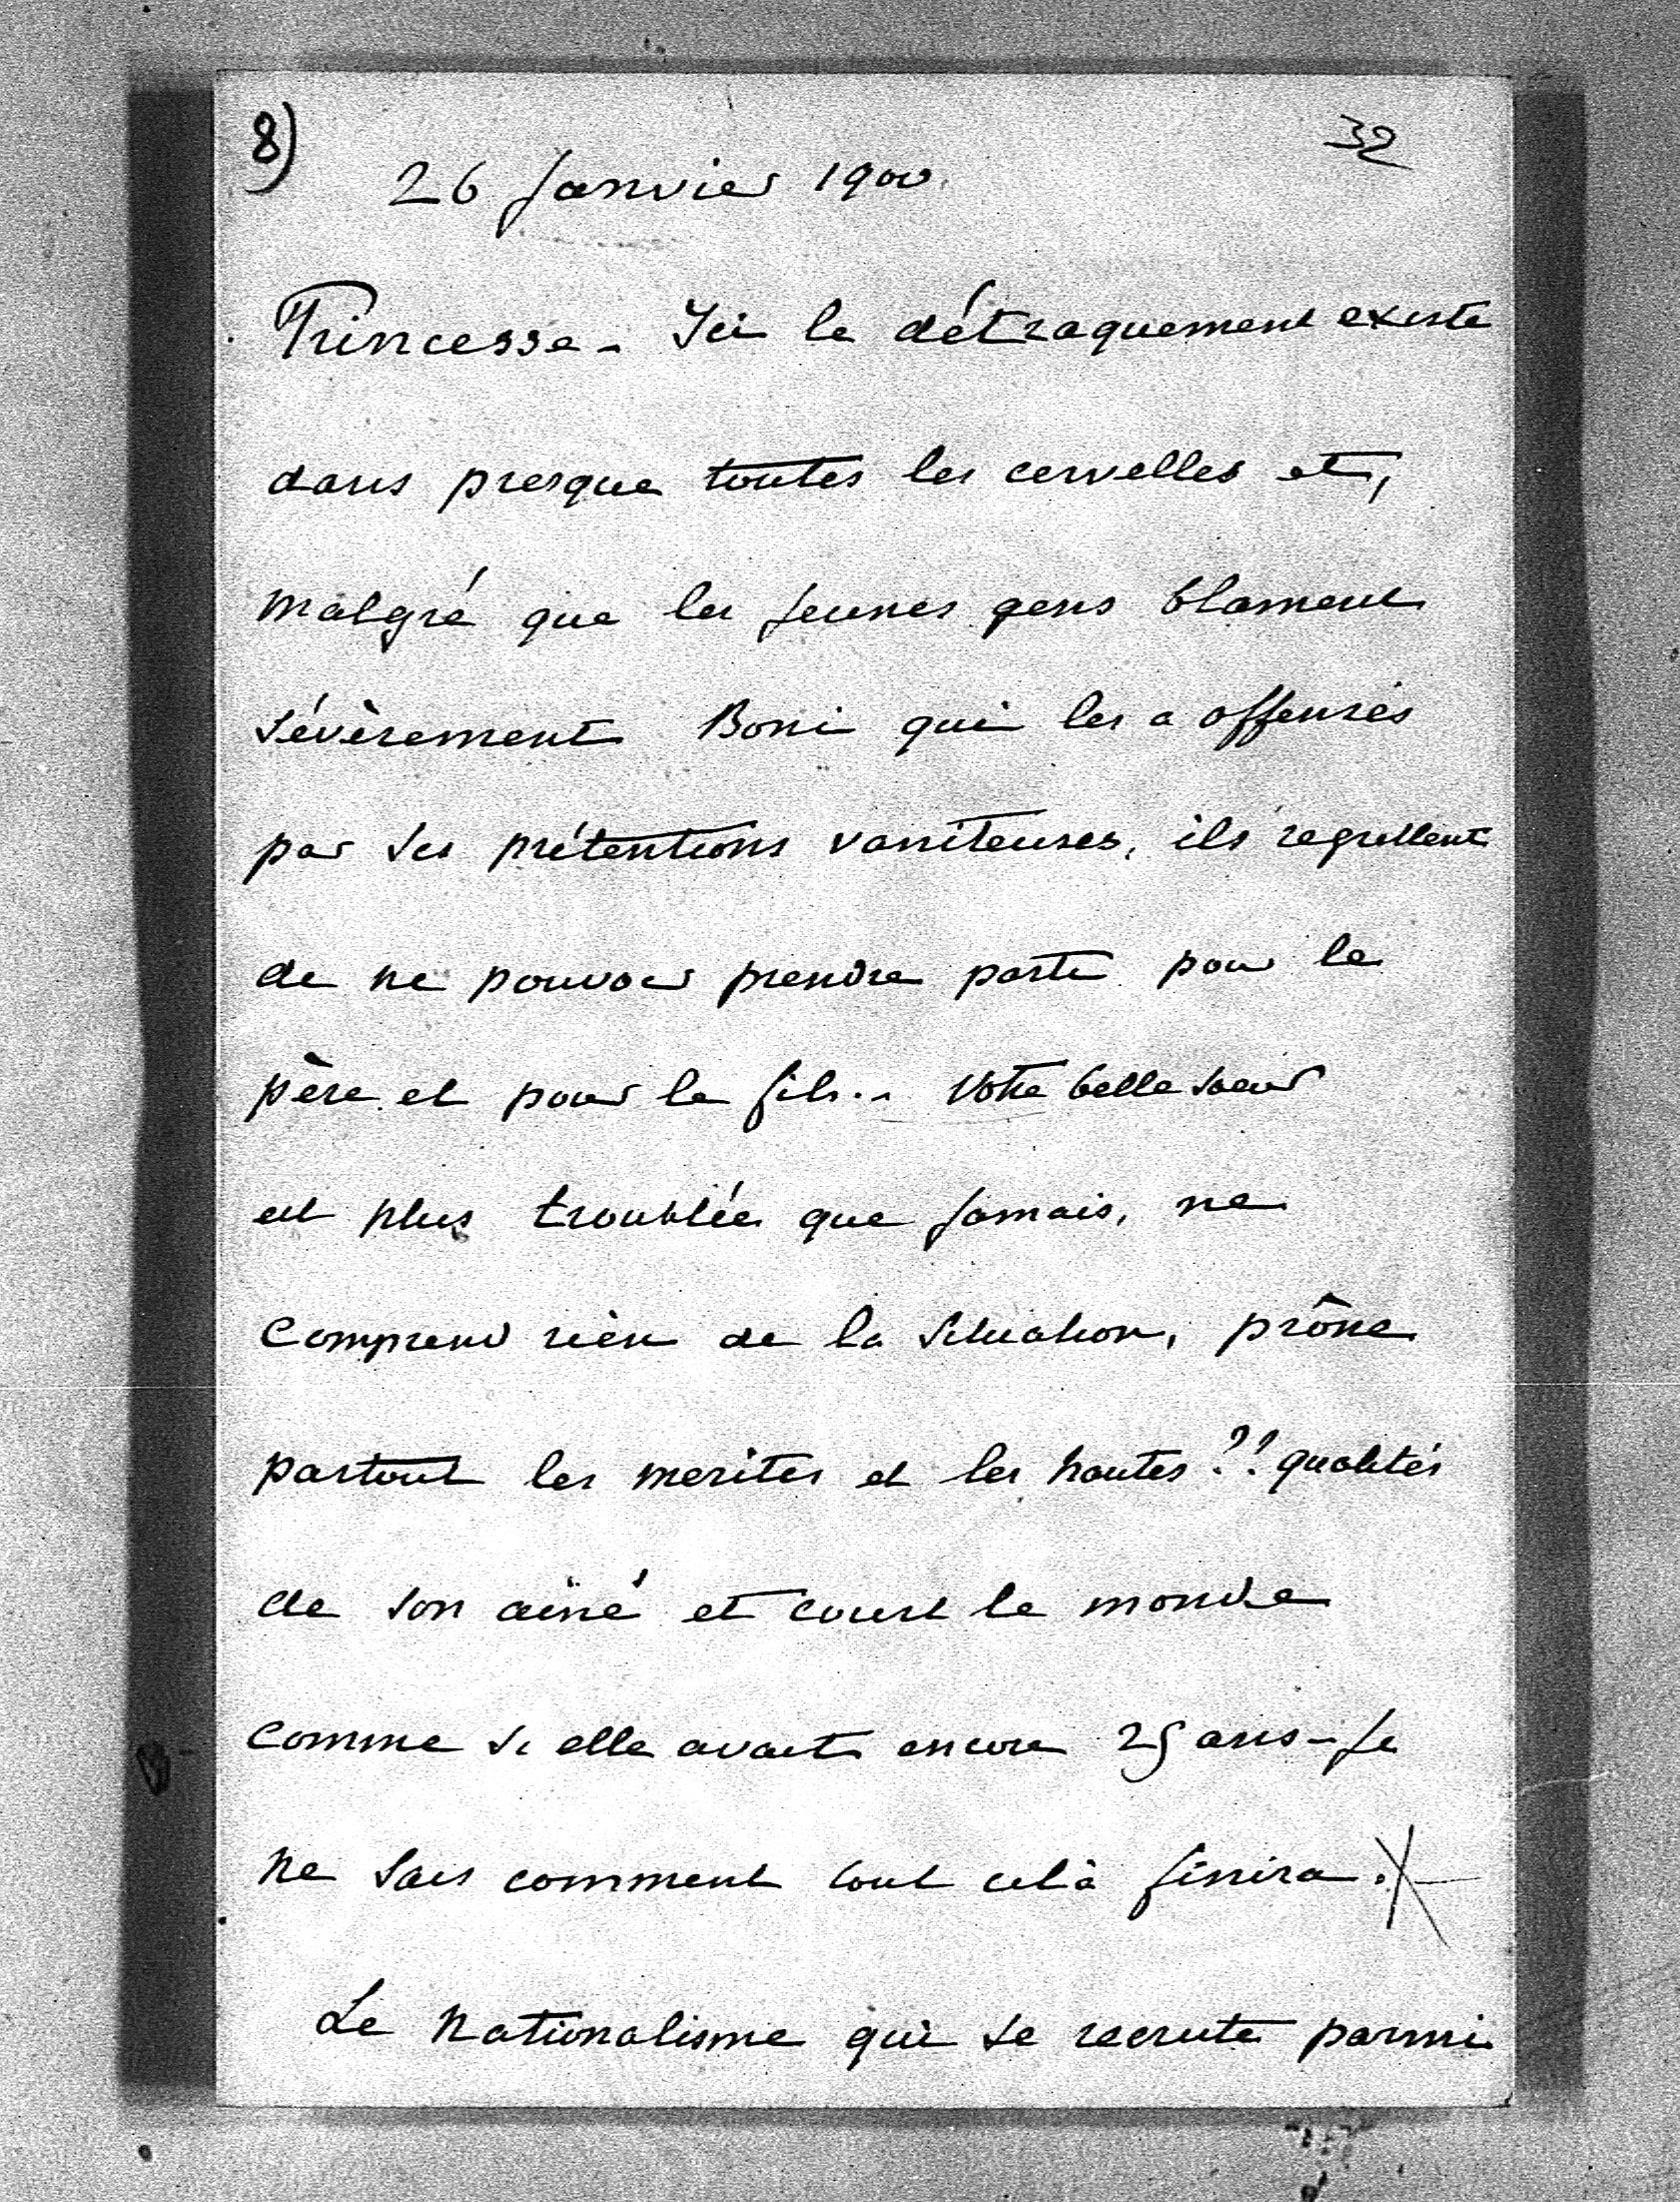 8)
32
26 Janvier 1900.
Princesse - Ici le détraquement existe
dans presque toutes les cervelles et,
malgré que les jeunes gens blament
sévèrement Boni qui les a offensés
par ses prétentions vaniteuses, ils regrettent
de ne pouvoir prendre parti pour le
père et pour le fils.. Votre belle soeur
est plus troublée que jamais, ne
comprend rien de la situation, prône
partout les merites et les hautes ?? qualités
de son ainé et court le monde
comme si elle avait encore 25 ans - Je
ne sais comment tout celà finira. X
Le Nationalisme qui se recrute parmi